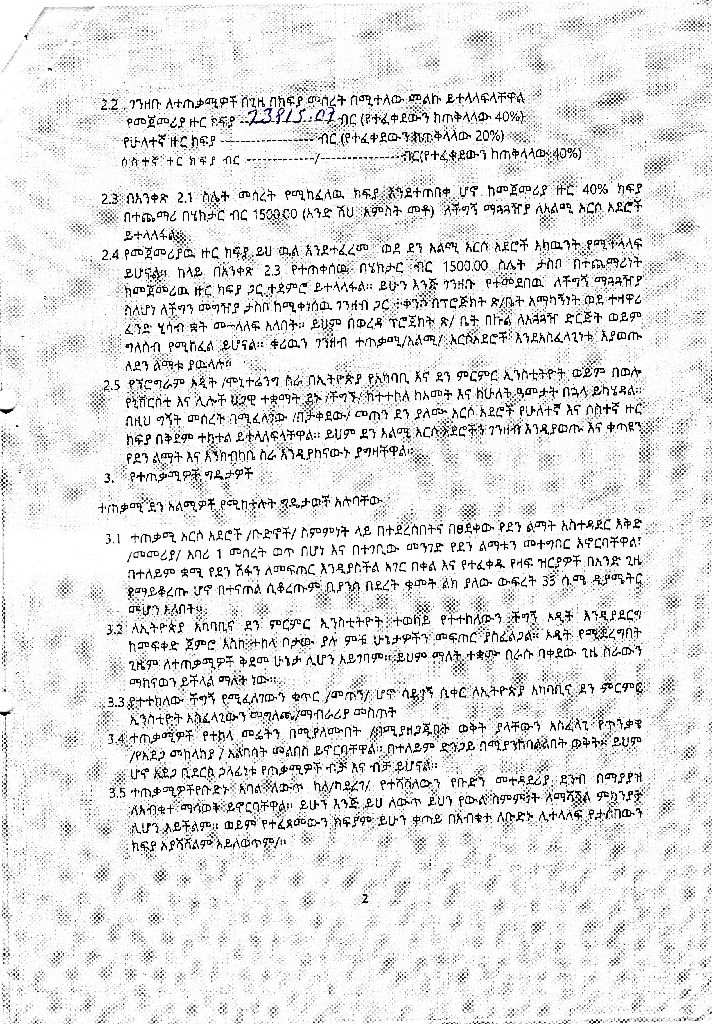 2.2 ገንዘቡ ለተጠቃሚዎች በጊዜ በክፍያ መሰረት በሚተለው መልኩ ይተላለፍላቸዋል
የመጀመሪያ ዙር ክፍያ --23815.07 ብር (የተፈቀደውን ከጠቅላላው 40%)
የሁለተኛ ዙር ክፍያ ------------------- ብር (የተፈቀደውን ከጠቅላላው 20%)
ሶስተኛ ዙር ክፍያ ብር --------------/----------------ብር(የተፈቀደውን ከጠቅላላው 40%)
2.3 በአንቀጽ 2.1 ስሌት መሰረት የሚከፈለዉ ክፍያ እንደተጠበቀ ሆኖ ከመጀመሪያ ዙር 40% ክፍያ
በተጨማሪ በሄክታር ብር 1500.00 (አንድ ሽህ አምስት መቶ) ለችግኝ ማጓጓዣያ ለአልሚ አርሶ አደሮች
ይተላለፋል
2.4 የመጀመሪያዉ ዙር ክፍያ ይህ ዉል እንደተፈረመ ወደ ደን አልሚ አርሶ አደሮች አካዉንት የሚተላለፍ
ይሆናል። ከላይ በአንቀጽ 2.3 የተጠቀሰዉ በሄክታር ብር 1500.00 ስሌት ታስቦ በተጨማሪነት
ከመጀመሪዉ ዙር ክፍያ ጋር ተደምሮ ይተላለፋል። ይሁን እንጅ ገንዘቡ የተመደበዉ ለችግኝ ማጓጓዣያ
ስለሆነ ለችግኝ መግዣያ ታስቦ ከሚቀነሰዉ ገንዘብ ጋር ተቀንሶ በፕሮጅክት ጽ/ቤት አማካኝነት ወደ ተዘዋሪ
ፈንድ ሂሳብ ቋት መተላለፍ አለበት። ይህም በወረዳ ፕሮጀክት ጽ/ ቤት በኩል ለአጓጓዥ ድርጅት ወይም
ግለሰብ የሚከፈል ይሆናል። ቀሪዉን ገንዘብ ተጠቃሚ/አልሚ/ አርሶአደሮች እንደአስፈላጊነቱ እያወጡ
ለደን ልማቱ ያዉላሉ።
2.5 የፕሮግራም ኦዲት /ሞኒተሬንግ ስራ በኢትዮጵያ የአካባቢ እና ደን ምርምር ኢንስቲትዮት ወይም በወሎ
የኒቨርስቲ እና ሌሎች ህጋዊ ተቋማት ይኑ /ችግኙ/ ከተተከለ ከአመት እና ከሁለት ዓመታት በኋላ ይካሄዳል።
በዚህ ግኝት መሰረት በሚፈለገው /በታቀደው/ መጠን ደን ያለሙ አርሶ አደሮች የሁለተኛ እና ሶስተኛ ዙር
ክፍያ በቅደም ተከተል ይተላለፍላቸዋል። ይህም ደን አልሚ አርሶ አደሮችን ገንዘብ እንዲያወጡ እና ቀጣዩን
የደን ልማት እና እንክብካቤ ስራ እንዲያከናውኑ ያግዛቸዋል።
3. የተጠቃሚዎች ግዴታዎች
ተጠቃሚ ደን አልሚዎች የሚከተሉት ግዴታዎች አሉባቸው
3.1 ተጠቃሚ አርሶ አደሮች /ቡድኖች/ ስምምነት ላይ በተደረሰበትና በፀደቀው የደን ልማት አስተዳደር እቅድ
/መመሪያ/ አባሪ 1 መሰረት ወጥ በሆነ እና በተገቢው መንገድ የደን ልማቱን መተግበር ይኖርባቸዋል፣
በተለይም ቋሚ የደን ሽፋን ለመፍጠር እንዲያስችል አገር በቀል እና የተፈቀዱ የዛፍ ዝርያዎች በአንድ ጊዜ
የማይቆረጡ ሆኖ በተናጠል ሲቆረጡም ቢያንስ በደረት ቁመት ልክ ያለው ውፍረት 35 ሴ.ሜ ዲያሜትር
መሆን አለበት።
3.2 ለኢትዮጵያ አካባቢና ደን ምርምር ኢንስቲትዮት ተወካይ የተተከለውን ችግኝ ኦዲት እንዲያደርግ
ከመፍቀድ ጀምሮ እስከ ተከላ ቦታው ያሉ ምቹ ሁኔታዎችን መፍጠር ያስፈልጋል። ኦዲት የሚደረግበት
ጊዜም ለተጠቃሚዎች ቅድመ ሁኔታ ሊሆን አይገባም። ይህም ማለት ተቋሙ በራሱ በቀደው ጊዜ ስራውን
ማከናወን ይችላል ማለት ነው።
3.3 የተተከለው ችግኝ የሚፈለገውን ቁጥር /መጠን/ ሆኖ ሳይገኝ ሲቀር ለኢትዮጵያ አካባቢና ደን ምርምር
ኢንስቲዮት አስፈላጊውን መግለጫ/ማብራሪያ መስጠት
3.4 ተጠቃሚዎች የተከላ መሬትን በሚያለሙበት /በሚያዘጋጁበት ወቅት ያላቸውን አስፈላጊ የጥንቃቄ
/የአደጋ መከላከያ / አልባሳት መልበስ ይኖርባቸዋል። በተለይም ድንጋይ በሚያንከባልሉበት ወቅት። ይህም
ሆኖ አደጋ ቢደርስ ኃላፊነቱ የጠቃሚዎች ብቻ እና ብቻ ይሆናል።
3.5 ተጠቃሚዎች የቡድኑ አባል ለውጥ ካለ/ከደረገ/ የተሻሻለውን የቡድን መተዳደሪያ ደንብ በማያያዝ
ለአብቁተ ማሳወቅ ይኖርባቸዋል። ይሁን እንጅ ይህ ለውጥ ይህን የውል ስምምነት ለማሻሻል ምክንያት
ሊሆን አይችልም። ወይም የተፈጸመውን ክፍያም ይሁን ቀጣይ በአብቁተ ለቡድኑ ሊተላለፍ የታሰበውን
ክፍያ አያሻሽልም አይለውጥም/።
2